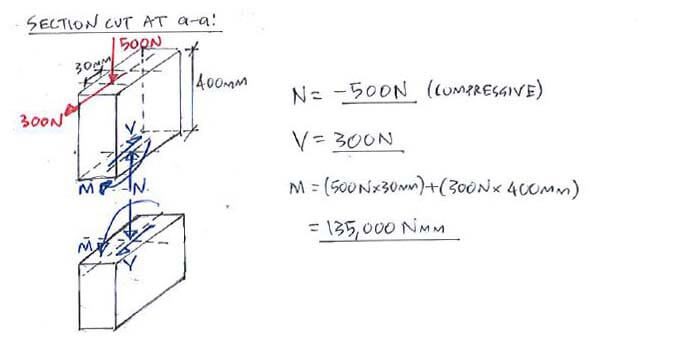 SECTION CUT AT a-a!
500N
30MM
400MM
300N
V
M
N
M
V
N = -500N (COMPRESSIVE)
V = 300N
M = (500N×30MM)+(300N×400MM)
= 135,000 NMM